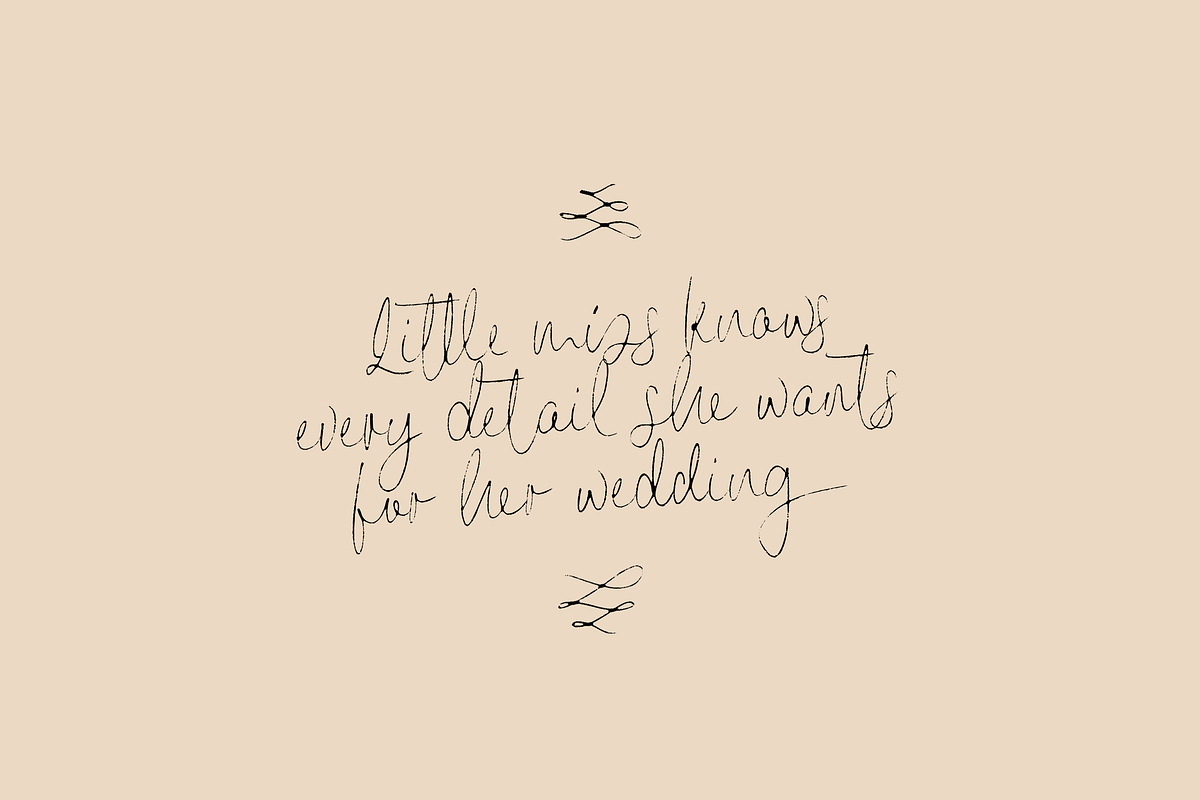 Little miss knows
every detail she wants
for her wedding